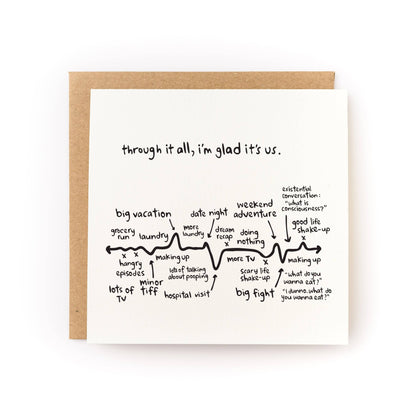 through it all, i'm glad it's us.
existential
conversation:
"what is
consciousness?"
weekend
adventure
big vacation
date night
good life
shake-up
more
laundry
dream
recap
doing
nothing
grocery
run
laundry
x x
x
x
hangry
episodes
making up
lots of talking
about pooping
more TV
scary life
shake-up
making up
lots of
TV
minor
tiff
hospital visit
big fight
"what do you
wanna eat?"
"I dunno. what do
you wanna eat?"